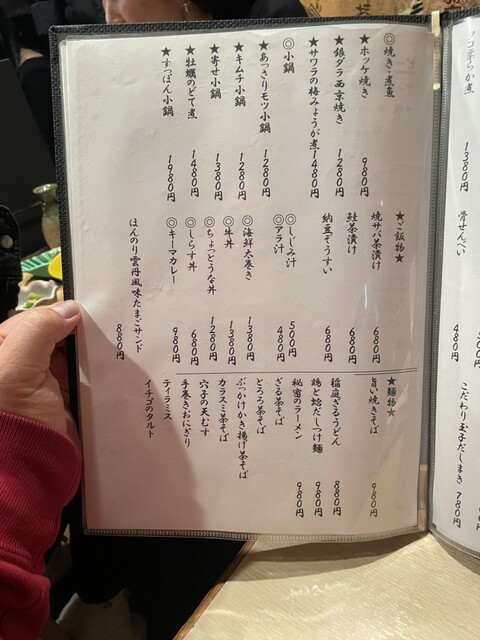 ◎焼き・煮魚
★ホッケ焼き 980円
★銀ダラ西京焼き 1280円
★サワラの梅みょうが煮 1480円
◎小鍋
★あっさりモツ小鍋 1280円
★キムチ小鍋 1280円
★寄せ小鍋 1380円
★牡蠣のどて煮 980円
★すっぽん小鍋 1980円
★ご飯物★
焼サバ茶漬け 680円
鮭茶漬け 680円
納豆ぞうすい 680円
◎しじみ汁 500円
◎アラ汁 480円
◎海鮮太巻き 1380円
◎牛丼 1380円
◎ちょっとうな丼 1280円
◎しらす丼 680円
◎キーマカレー 980円
ほんのり雲丹風味たまごサンド 880円
★麺物★
旨い焼きそば 980円
稲庭ざるうどん 880円
鶏と蛤だしつけ麺 980円
秘密のラーメン 980円
ざる茶そば
とろろ茶そば
ぶっかけかき揚げ茶そば
カラスミ茶そば
穴子の天むす
手巻きおにぎり
ティラミス
イチゴのタルト
らか煮 1380円
骨せんべい 480円
こだわり玉子だしまき 780円